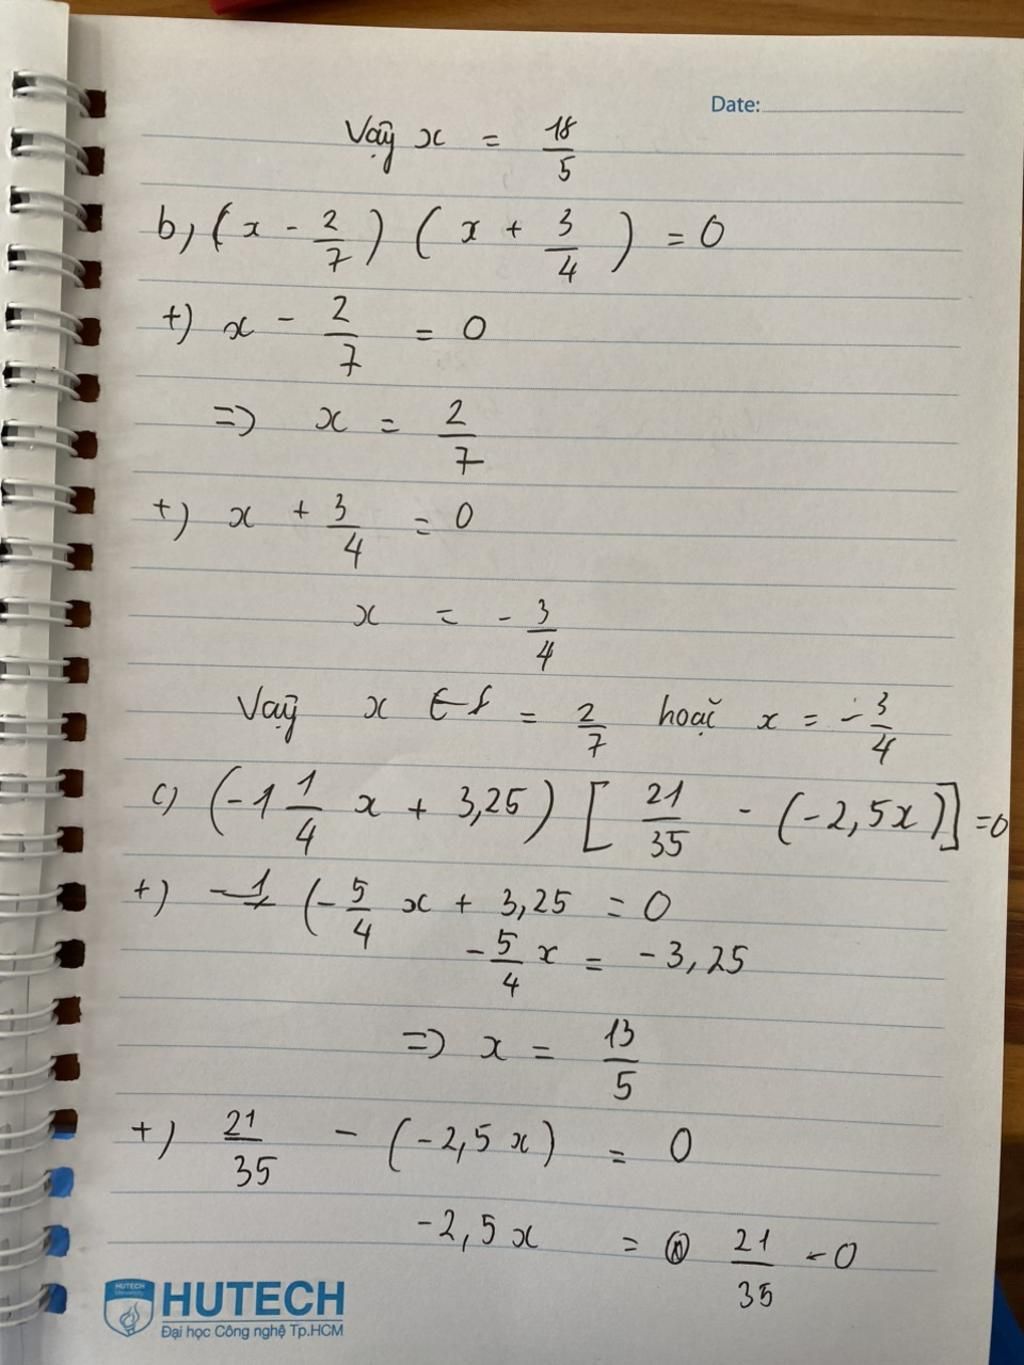 Date:
Vậy x = 18/5
b, (x - 2/7) (x + 3/4) = 0
+) x - 2/7 = 0
=> x = 2/7
+) x + 3/4 = 0
x = - 3/4
Vậy x = 2/7 hoặc x = - 3/4
c) (-1 1/4 x + 3,25) [21/35 - (-2,5x)] = 0
+) (- 5/4 x + 3,25 = 0
- 5/4 x = - 3,25
=> x = 13/5
+) 21/35 - (-2,5x) = 0
-2,5x = 21/35 - 0
HUTECH University
HUTECH
Đại học Công nghệ Tp.HCM